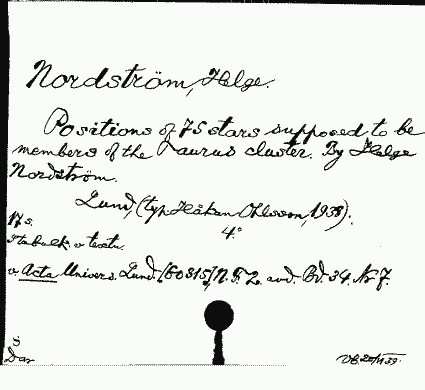 Nordström, Helge.
Positions of 75 stars supposed to be
members of the Taurus cluster. By Helge
Nordström.
Lund, (typ. Håkan Ohlsson, 1938).
4°
17 s.
v. Acta Univers. Lund. [60815] N. F. 2. avd. Bd. 34. Nr 7.